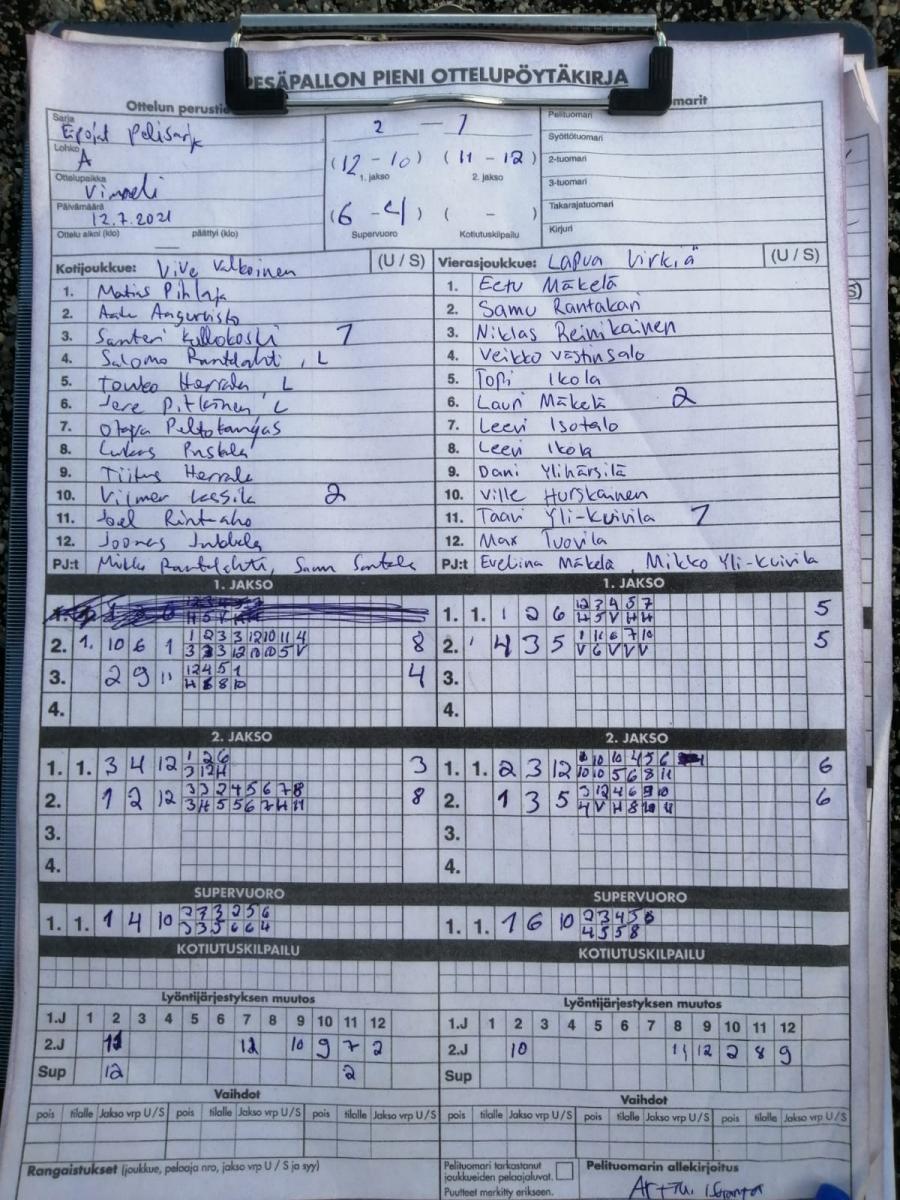 PESÄPALLON PIENI OTTELUPÖYTÄKIRJA
Ottelun perustie
marit
Sarja
Epojat pelisarja
Lohko
A
Ottelupaikka
Vimpeli
Päivämäärä
12.7.2021
Ottelu alkoi (klo) päättyi (klo)
2 - 1
(12 - 10) (11 - 12)
1. jakso 2. jakso
(6 - 4) ( - )
Supervuoro Kotiutuskilpailu
Pelituomari
Syöttötuomari
2-tuomari
3-tuomari
Takarajatuomari
Kirjuri
Kotijoukkue: ViVe Valkoinen (U / S)
1. Matias Pihlaja
2.
3. Santeri Kullokoski 1
4. Salomo Rantalahti, L
5. Touko Herrala L
6. Jere Pitkänen L
7. Peltokangas
8. Lukas
9. Tiitus Herrala
10. Vilmer Lassila 2
11. Joel Rintaaho
12. Joonas Jukkola
PJ:t Mikko Rantalahti,
Vierasjoukkue: Lapua Virkiä (U / S)
1. Eetu Mäkelä
2. Samu Rantakari
3. Niklas Reinikainen
4. Veikko Västinsalo
5. Topi Ikola
6. Lauri Mäkelä 2
7. Leevi Isotalo
8. Leevi Ikola
9. Dani Ylihärsilä
10. Ville Hurskainen
11. Taavi Yli-Kuivila 1
12. Max Tuovila
PJ:t Eveliina Mäkelä, Mikko Yli-Kuivila
1. JAKSO
2. 1. 10 6 1 1 2 3 3 12 10 11 4 8
3. 2 9 11 12 4 5 1 4
4.
2. JAKSO
1. 1. 3 4 12 1 2 6 3
3 12 H
2. 1 2 12 3 3 2 4 5 6 7 8 8
3 H 5 5 6 7 H H
3.
4.
SUPERVUORO
1. 1. 1 4 10
KOTIUTUSKILPAILU
Lyöntijärjestyksen muutos
1.J 1 2 3 4 5 6 7 8 9 10 11 12
2.J 11 12 10 9 7 2
Sup 12 2
Vaihdot
pois tilalle Jakso vrp U / S pois tilalle Jakso vrp U / S pois tilalle Jakso vrp U / S
1. JAKSO
1. 1. 1 2 6 12 3 4 5 7 5
H 5 V H H
2. 4 3 5 1 11 6 7 10 5
V 6 V V V
3.
4.
2. JAKSO
1. 1. 2 3 12 6
10 10 5 6 8 11
2. 1 3 5 3 12 4 6 9 10 6
3.
4.
SUPERVUORO
1. 1. 1 6 10 2 3 4 5 6
4 5 5 8
KOTIUTUSKILPAILU
Lyöntijärjestyksen muutos
1.J 1 2 3 4 5 6 7 8 9 10 11 12
2.J 10 11 12 2 8 9
Sup
Vaihdot
pois tilalle Jakso vrp U / S pois tilalle Jakso vrp U / S pois tilalle Jakso vrp U / S
Rangaistukset (joukkue, pelaaja nro, jakso vrp U / S ja syy)
Pelituomari tarkastanut
joukkueiden pelaajaluvat.
Puutteet merkitty erikseen.
Pelituomarin allekirjoitus
Arttu